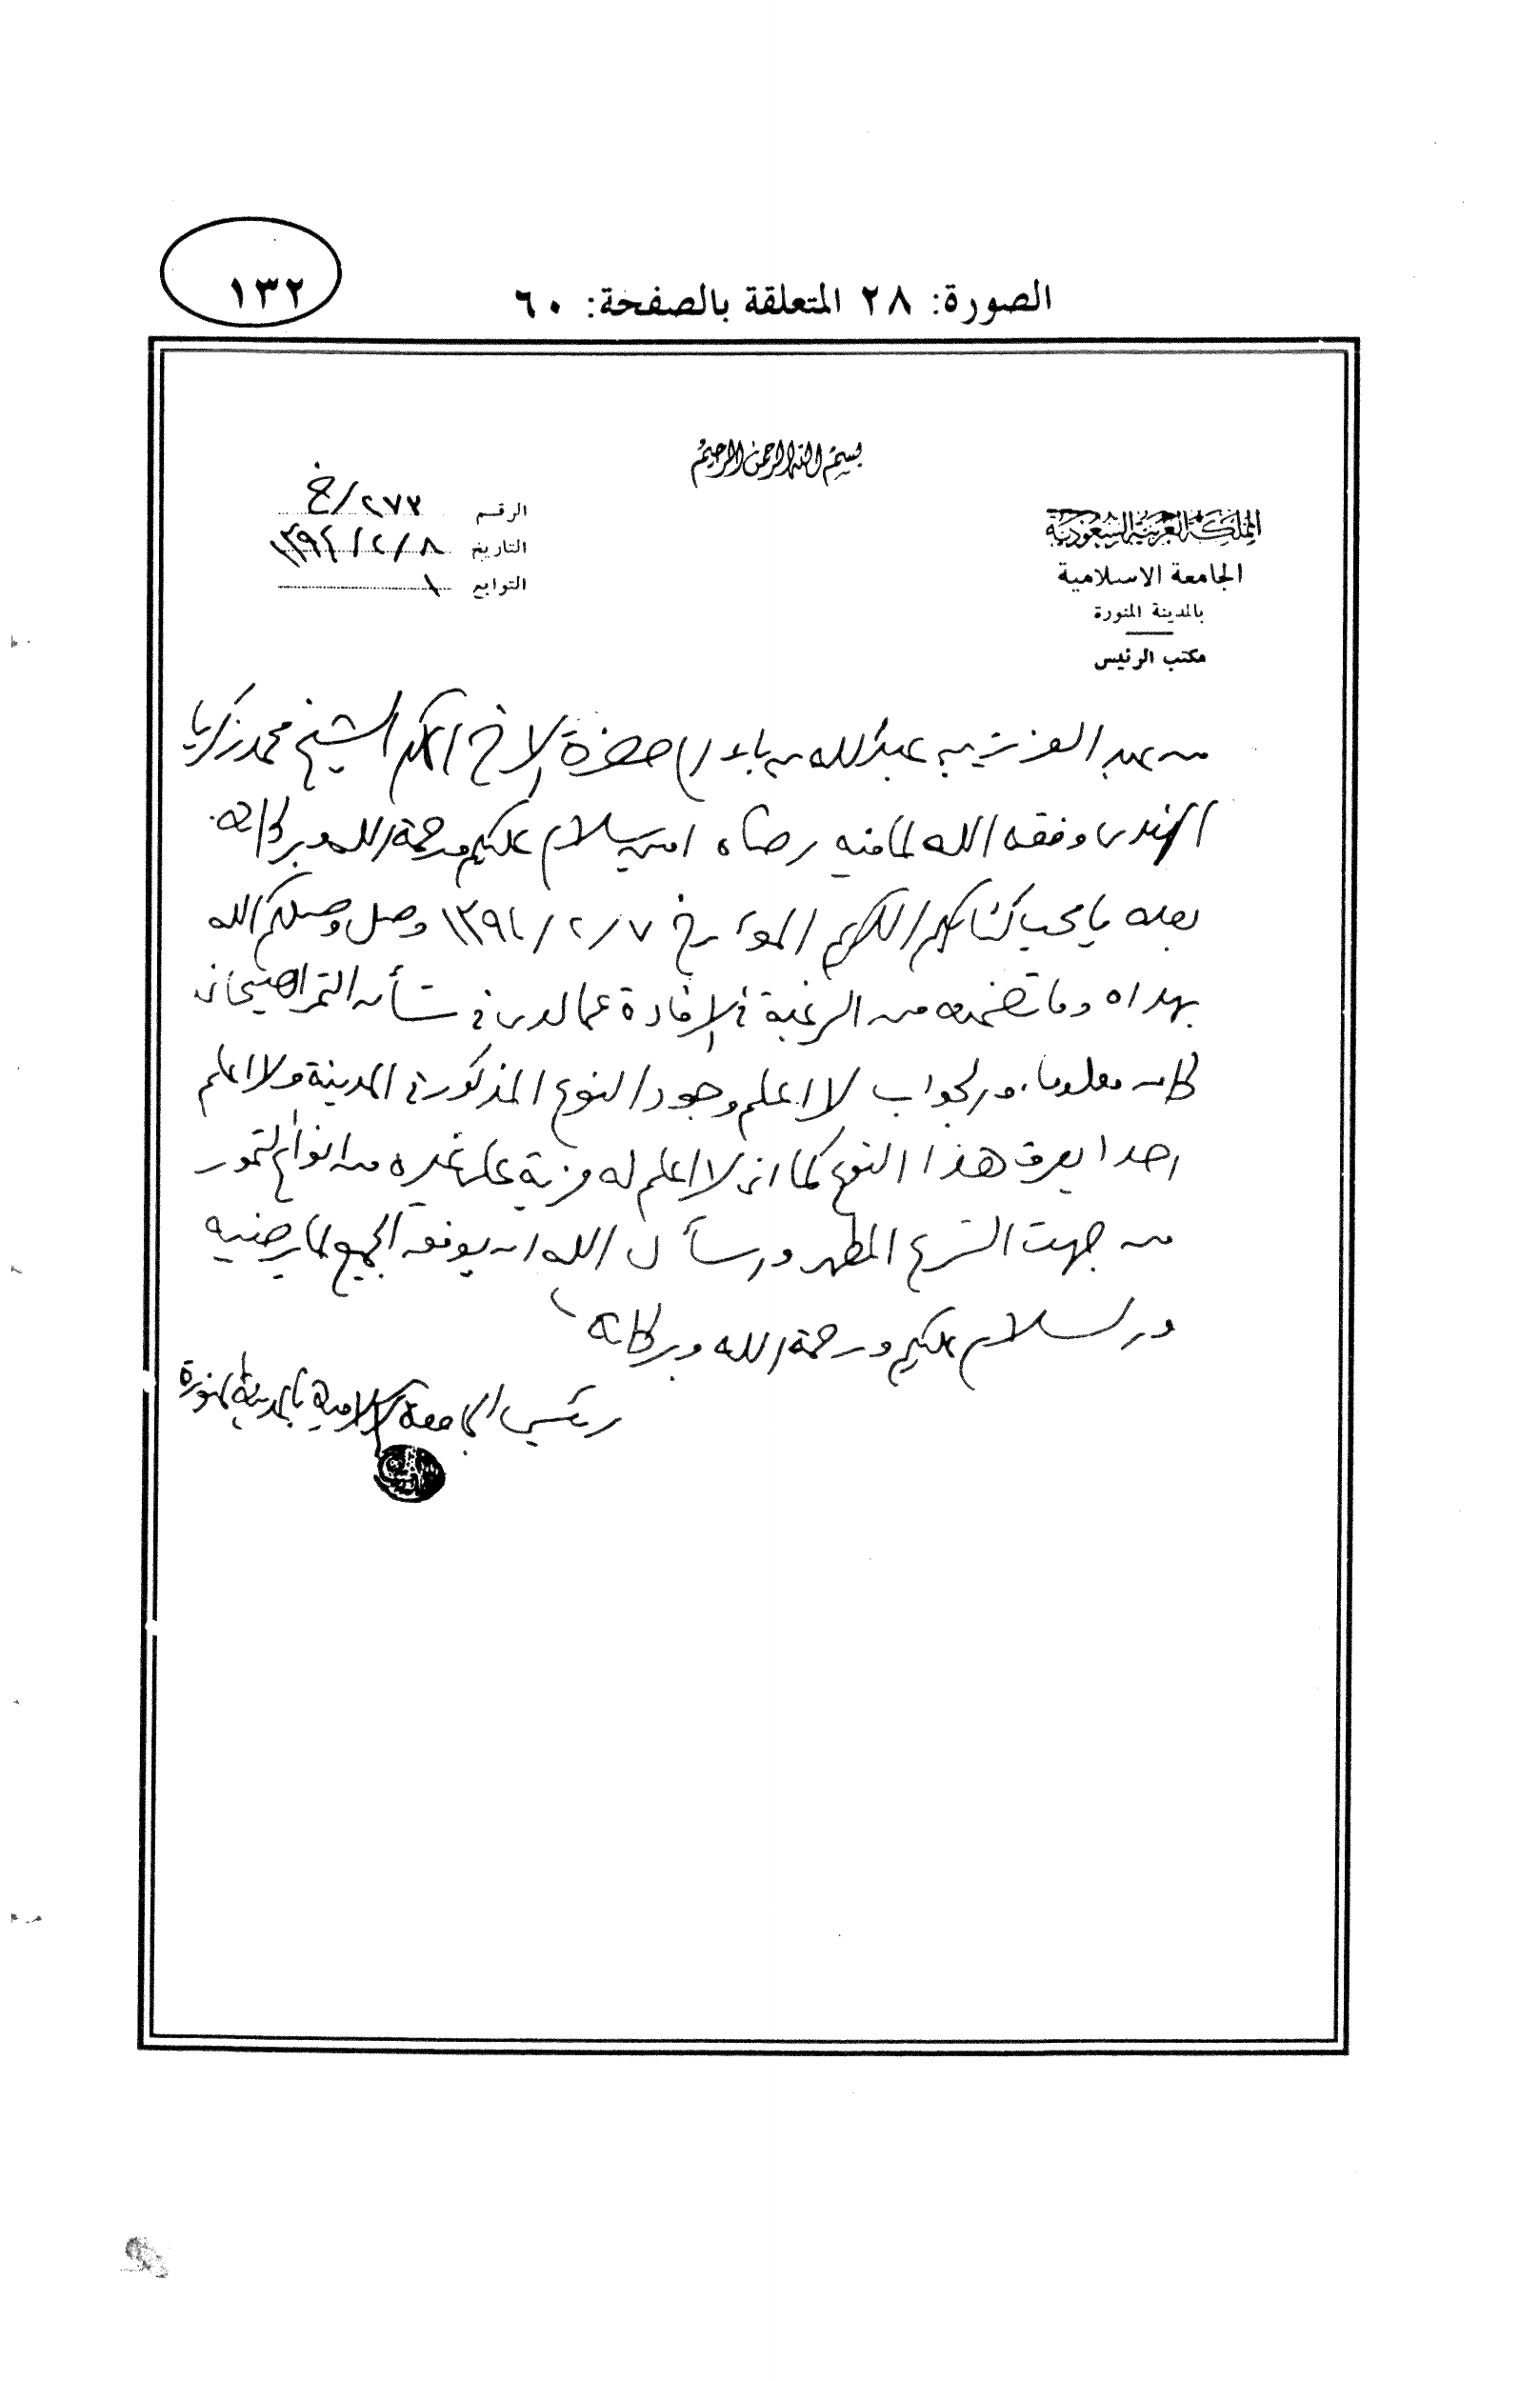 ١٣٢
الصورة: ٢٨ المتعلقة بالصفحة: ٦٠
بسم الله الرحمن الرحيم
المملكة العربية السعودية
الجامعة الاسلامية
بالمدينة المنورة
مكتب الرئيس
الرقم ٢٧٣/خ
التاريخ ٨/٢/١٣٩٤
التوابع ١
من عبد العزيز بن عبدالله بن باز الى حضرة الاخ المكرم الشيخ محمد زكريا
الهندى وفقه الله لما فيه رضاه امين سلام عليكم ورحمة الله وبركاته
بعده يا محب كتابكم الكريم المؤرخ ٧/٢/١٣٩٤ وصل وصلكم الله
بهداه وما تضمنه من الرغبة في الافادة عما لدى في شأن التمر
كان معلوما، والجواب لا اعلم وجود النوع المذكور في المدينة ولا اعلم
احدا يعرف هذا النوع كما انى لا اعلم له مزية على غيره من انواع التمور
من جهت الشرع المطهر واسأل الله ان يوفق الجميع لما يرضيه
والسلام عليكم ورحمة الله وبركاته
رئيس الجامعة الاسلامية بالمدينة المنورة